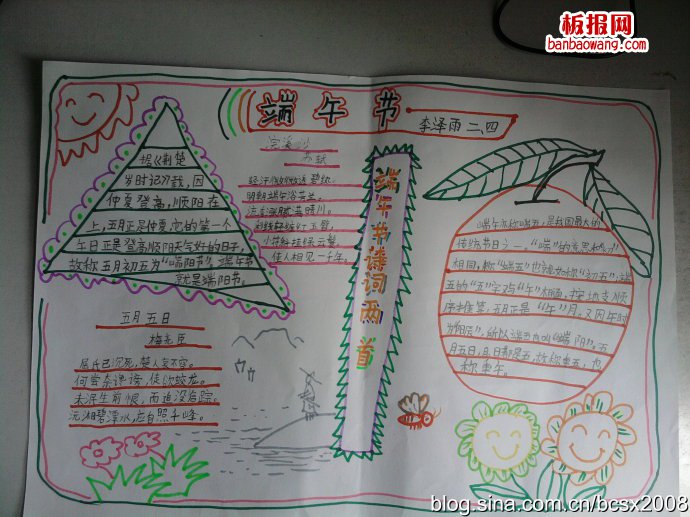 板报网
banbaowang.com
端午节
李泽雨 二、四
据《荆楚
岁时记》载，因
仲夏登高，顺阳在
上，五月正是仲夏，它的第一个
午日正是登高顺阳天气好的日子，
故称五月初五为“端阳节”。端午节
就是端阳节。
浣溪沙
苏轼
轻汗微微透碧纨，
明朝端午浴芳兰。
流香涨腻满晴川。
彩线轻缠红玉臂，
小符斜挂绿云鬟。
佳人相见一千年。
端午节诗词两首
五月五日
梅尧臣
屈氏已沉死，楚人哀不容。
何尝奈谗谤，徒欲却蛟龙。
未泯生前恨，而追没后踪。
沅湘碧潭水，应自照千峰。
端午亦称端五，是我国最大的
传统节日之一，“端”的意思和“初”
相同，称“端五”也就如称“初五”；端
五的“五”字又与“午”相通，按地支顺
序推算，五月正是“午”月。又因午时
为“阳辰”，所以端五也叫“端阳”。五
月五日，月日都是五，故称重五，也
称重午。
blog.sina.com.cn/bcsx2008